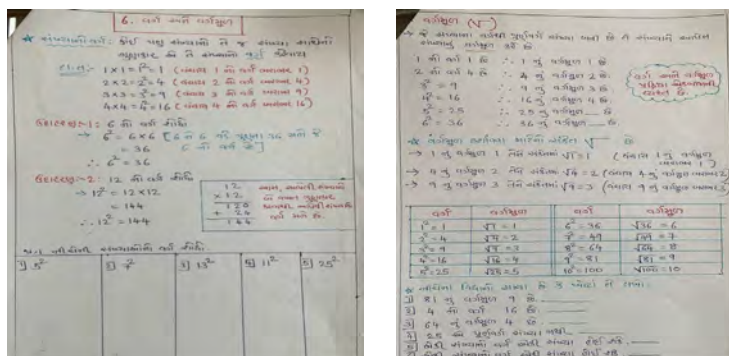 6. વર્ગ અને વર્ગમૂળ
* સંખ્યાનો વર્ગ: કોઈ પણ સંખ્યાનો તે જ સંખ્યા સાથેનો
ગુણાકાર એ તે સંખ્યાનો વર્ગ
1×1=1²=1 (વંચાય 1 નો વર્ગ બરાબર 1)
2×2=2²=4 (વંચાય 2 નો વર્ગ બરાબર 4)
3×3=3²=9 (વંચાય 3 નો વર્ગ બરાબર 9)
4×4=4²=16 (વંચાય 4 નો વર્ગ બરાબર 16)
ઉદાહરણ:-1: 6 નો વર્ગ શોધો
→ 6² = 6×6 [6 ને 6 વડે 36 મળે જે
= 36 6 નો વર્ગ છે]
∴ 6² = 36
ઉદાહરણ:-2: 12 નો વર્ગ શોધો
→ 12² = 12×12
= 144
∴ 12² = 144
12
×12
120
+ 24
144
આમ, આપેલી સંખ્યાનો
વર્ગ મળે છે.
નીચેની સંખ્યાઓનો વર્ગ શોધો
1] 5² 2] 7² 3] 13² 4] 11² 5] 25²
વર્ગમૂળ (√)
→ જે સંખ્યાના વર્ગથી પૂર્ણવર્ગ સંખ્યા બની છે તે સંખ્યાને આપેલ
સંખ્યાનું વર્ગમૂળ કહે છે
1 નો વર્ગ 1 છે ∴ 1 નું વર્ગમૂળ 1 છે.
2 નો વર્ગ 4 છે ∴ 4 નું વર્ગમૂળ 2 છે.
3² = 9 ∴ 9 નું વર્ગમૂળ 3 છે.
4² = 16 ∴ 16 નું વર્ગમૂળ 4 છે.
5² = 25 ∴ 25 નું વર્ગમૂળ __ છે
6² = 36 ∴ 36 નું વર્ગમૂળ __ છે
વર્ગ અને વર્ગમૂળ
* વર્ગમૂળ √ છે
→ 1 નું વર્ગમૂળ 1 તેને સંકેતમાં √1 = 1 (વંચાય 1 નું વર્ગમૂળ
બરાબર 1)
→ 4 નું વર્ગમૂળ 2 તેને સંકેતમાં √4 = 2 (વંચાય 4 નું વર્ગમૂળ બરાબર 2)
→ 9 નું વર્ગમૂળ 3 તેને સંકેતમાં √9 = 3 (વંચાય 9 નું વર્ગમૂળ બરાબર 3)
વર્ગ વર્ગમૂળ વર્ગ વર્ગમૂળ
1² = 1 √1 = 1 6² = 36 √36 = 6
2² = 4 √4 = 2 7² = 49 √49 = 7
3² = 9 √9 = 3 8² = 64 √64 = 8
4² = 16 √16 = 4 9² = 81 √81 = 9
5² = 25 √25 = 5 10² = 100 √100 = 10
* નીચેના વિધાનો સાચા છે કે ખોટાં તે લખો:
1] 81 નું વર્ગમૂળ 9 છે.
2] 4 નો વર્ગ 16 છે.
3] 64 નું વર્ગમૂળ 4 છે.
4] 25 એ પૂર્ણવર્ગ સંખ્યા નથી.